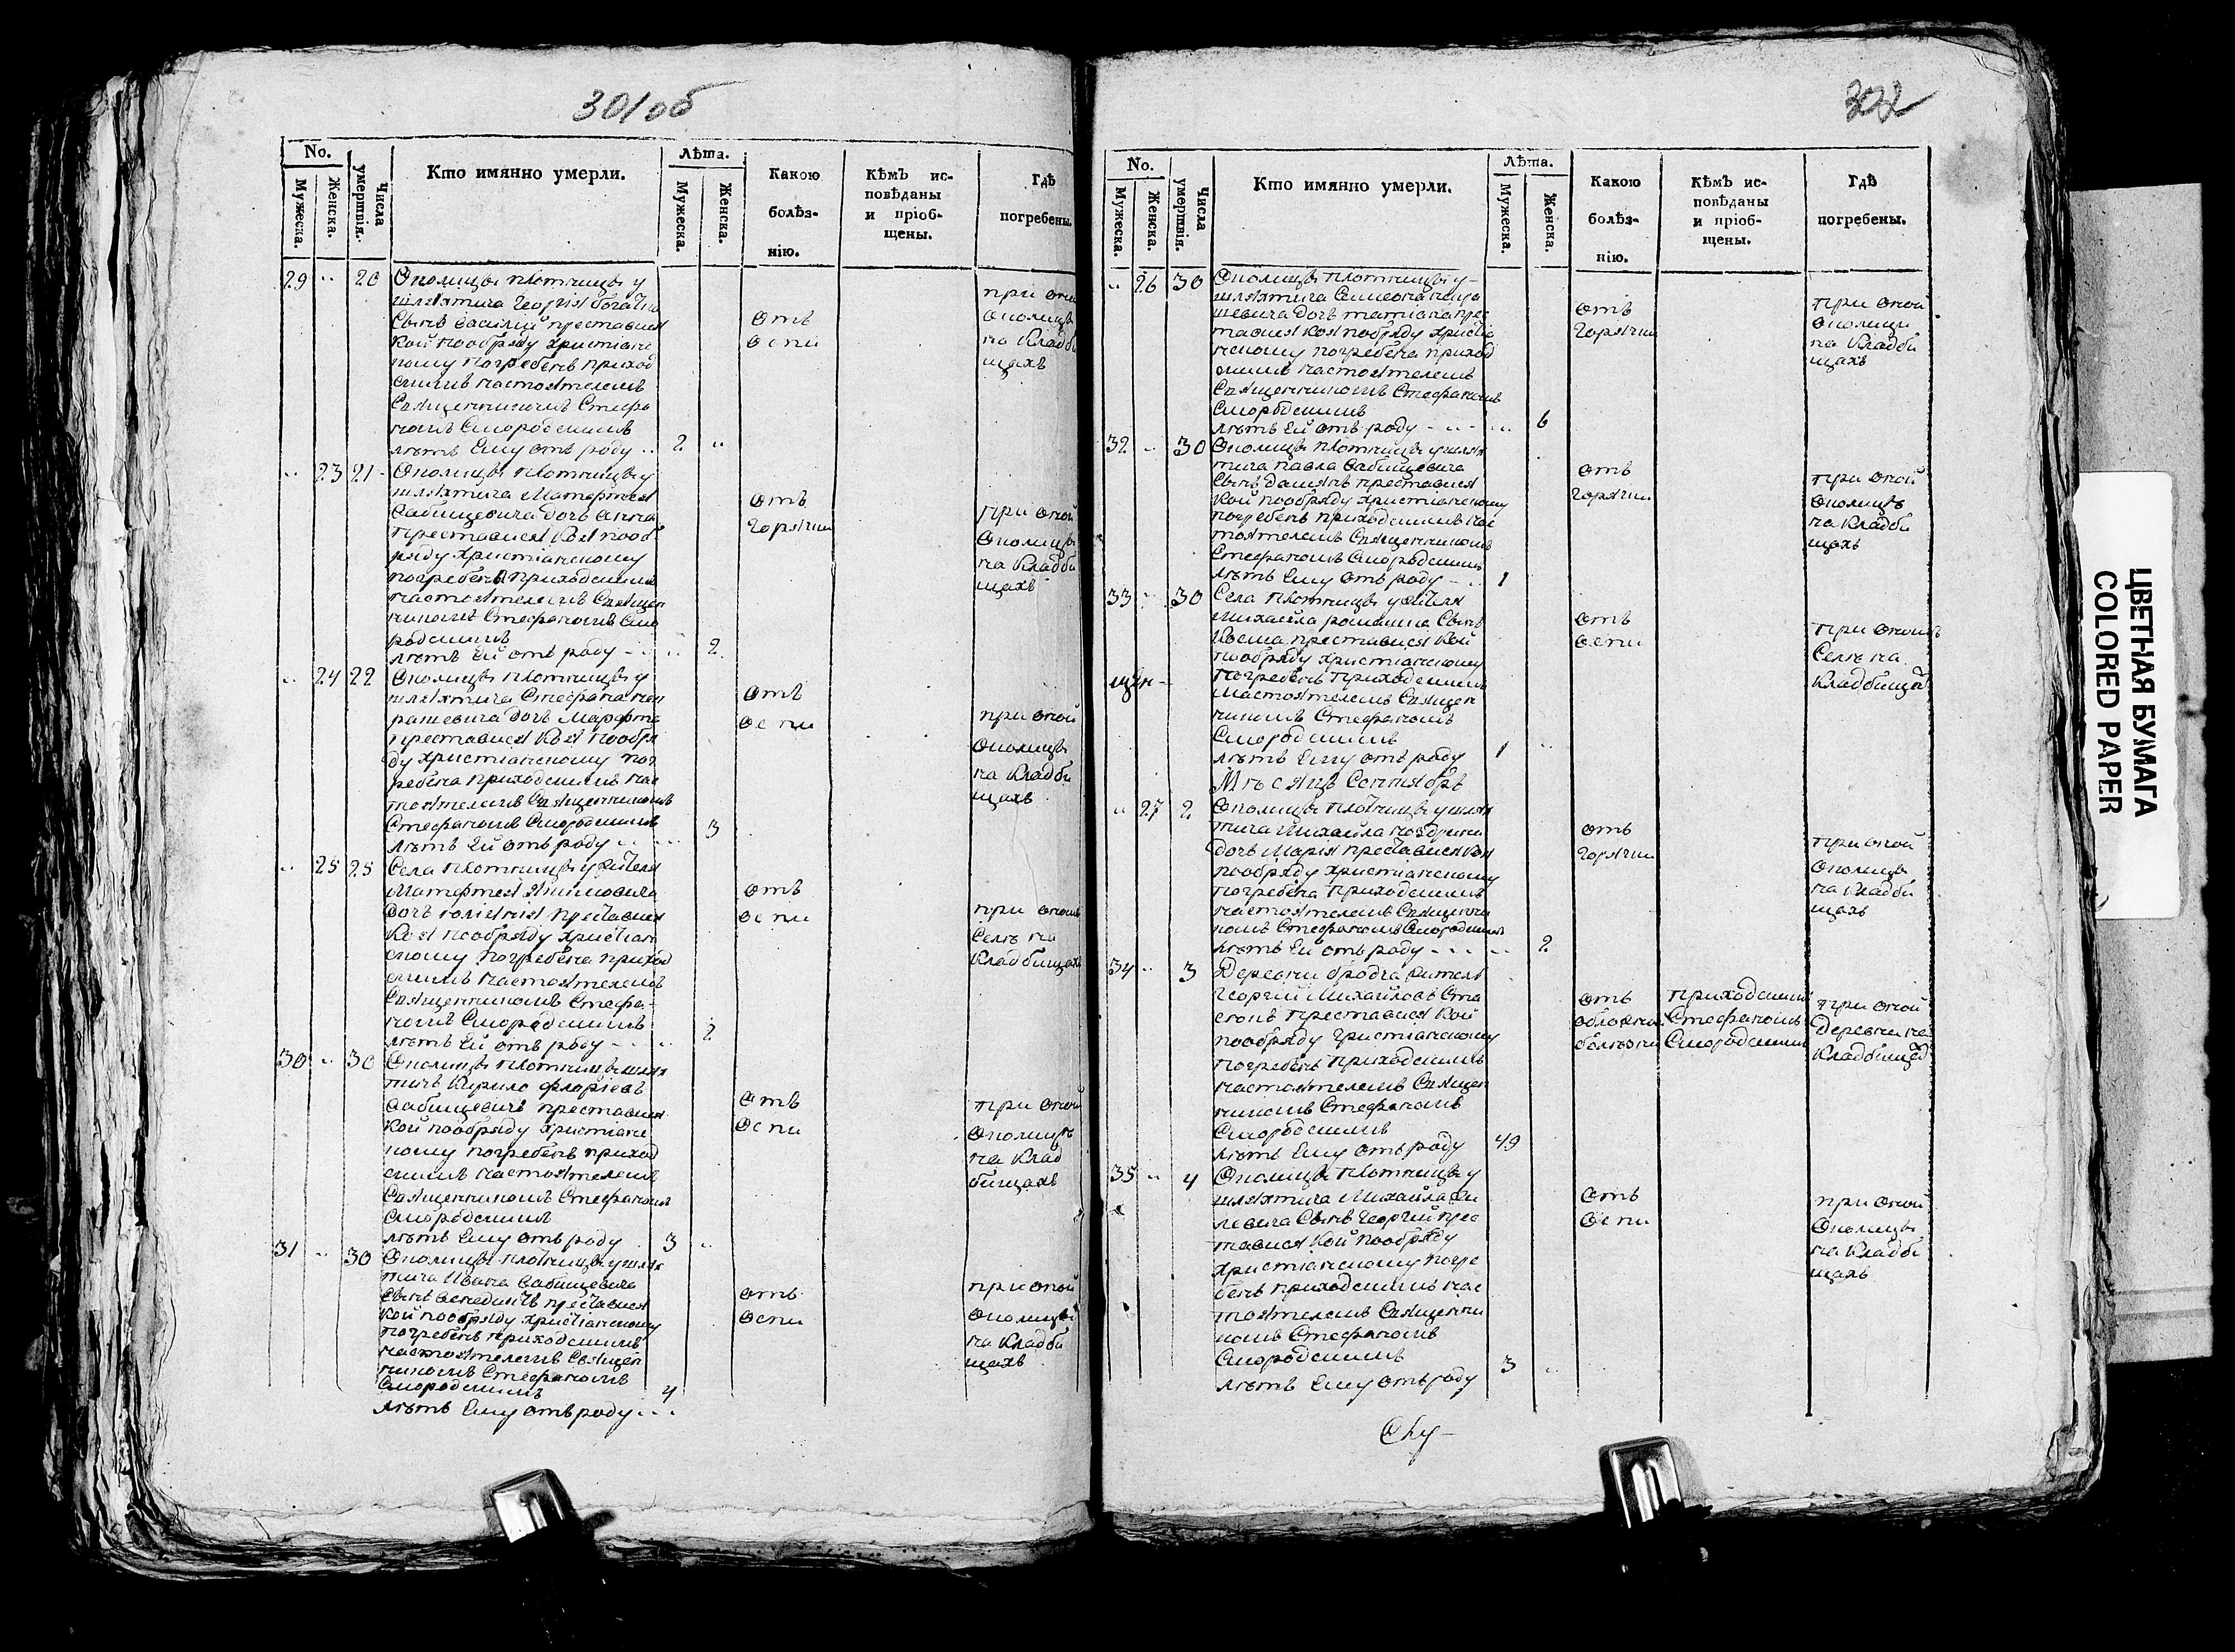 301 об
No.
Мужеска.
Женска.
Числа умертвія.
Кто имянно умерли.
Лѣта.
Мужеска.
Женска.
Какою болѣз-
нію.
Кѣмъ ис-
повѣданы
и пріоб-
щены.
Гдѣ
погребены.
29 " 20 Околицы Плотницы у
шляхтича Георгія
Сынъ Василій преставися
кой пообряду христианс
кому погребенъ приход
скимъ настоятелемъ
Священникомъ Стефа
номъ Смородскимъ
лѣтъ Ему отъ роду 2 "
отъ
оспи
при оной
Околицѣ
на Кладби
щахъ
" 23 21 Околицы Плотницы у
шляхтича Матфтея
Сабицевича дочь Анна
преставися коя пооб
ряду христианскому
погребена приходскимъ
настоятелемъ Священ
никомъ Стефаномъ Смо
родскимъ
лѣтъ Ей отъ роду 2
отъ
горячки
при оной
Околицы
на Кладби
щахъ
" 24 22 Околицы Плотницы у
шляхтича Стефана
рашевича дочь Марфта
преставися коя пообря
ду христианскому пог
ребена приходскимъ нас
тоятелемъ Священникомъ
Стефаномъ Смородскимъ
лѣтъ Ей отъ роду 3
отъ
оспи
при оной
Околицы
на Кладби
щахъ
" 25 25 Села Плотницы у жителя
Матфтея
дочь Юліянія преставися
коя пообряду христиан
скому погребена приход
скимъ настоятелемъ
Священникомъ Стефа
номъ Смородскимъ
лѣтъ Ей отъ роду 2
отъ
оспи
при ономъ
Селѣ на
Кладбищахъ
30 " 30 Околицы Плотницы шлях
тичъ Кирило
Сабицевичъ преставися
кой пообряду христианс
кому погребенъ приход
скимъ настоятелемъ
Священникомъ Стефаномъ
Смородскимъ
лѣтъ Ему отъ роду 3 "
отъ
оспи
при оной
Околицѣ
на Клад
бищахъ
31 " 30 Околицы Плотницы у шлях
тича Ивана Сабицевича
Сынъ преставися
кой пообряду христианскому
погребенъ приходскимъ
настоятелемъ Священ
никомъ Стефаномъ
Смородскимъ
лѣтъ Ему отъ роду 4
отъ
оспи
при оной
Околицы
на Кладби
щахъ
302
No.
Мужеска.
Женска.
Числа умертвія.
Кто имянно умерли.
Лѣта.
Мужеска.
Женска.
Какою
болѣз-
нію.
Кѣмъ ис-
повѣданы
и пріоб-
щены.
Гдѣ
погребены.
" 26 30 Околицы Плотницы у
шляхтича Симеона
шевича дочь Татіана прес
тавися коя пообряду христиа
нскому погребена приход
скимъ настоятелемъ
Священникомъ Стефаномъ
Смородскимъ
лѣтъ Ей отъ роду 6
отъ
горячки
при оной
Околицы
на Кладби
щахъ
32 " 30 Околицы Плотницы у шлях
тича Павла Сабицевича
Сынъ преставися
кой пообряду христианскому
погребенъ приходскимъ нас
тоятелемъ Священникомъ
Стефаномъ Смородскимъ
лѣтъ Ему отъ роду 1
отъ
горячки
при оной
Околицѣ
на Кладби
щахъ
33 " 30 Села Плотницы у жителя
Михаила Сынъ
преставися кой
пообряду христианскому
погребенъ приходскимъ
Настоятелемъ Священ
никомъ Стефаномъ
Смородскимъ
лѣтъ Ему отъ роду 1 "
отъ
оспи
при ономъ
Селѣ на
Кладбищахъ
Мѣсяцъ Сентябрь
" 27 2 Околицы Плотницы у шлях
тича Михаила
дочь Марія преставися коя
пообряду христианскому
погребена приходскимъ
настоятелемъ Священни
комъ Стефаномъ Смородскимъ
лѣтъ Ей отъ роду 2
отъ
горячки
при оной
Околицы
на Кладби
щахъ
34 " 3 Деревни Бродча житель
Георгій Михайловъ
преставися кой
пообряду христианскому
погребенъ приходскимъ
настоятелемъ Священ
никомъ Стефаномъ
Смородскимъ
лѣтъ Ему отъ роду 49
отъ
обложной
болѣзни
приходскимъ
Стефаномъ
Смородскимъ
при оной
Деревни на
Кладбищах
35 " 4 Околицы Плотницы у
шляхтича Михаила
левича Сынъ Георгій прес
тавися кой пообряду
христианскому погре
бенъ приходскимъ нас
тоятелемъ Священни
комъ Стефаномъ
Смородскимъ
лѣтъ Ему отъ роду 3
отъ
оспи
при оной
Околицы
на Кладби
щахъ
ЦВЕТНАЯ БУМАГА
COLORED PAPER